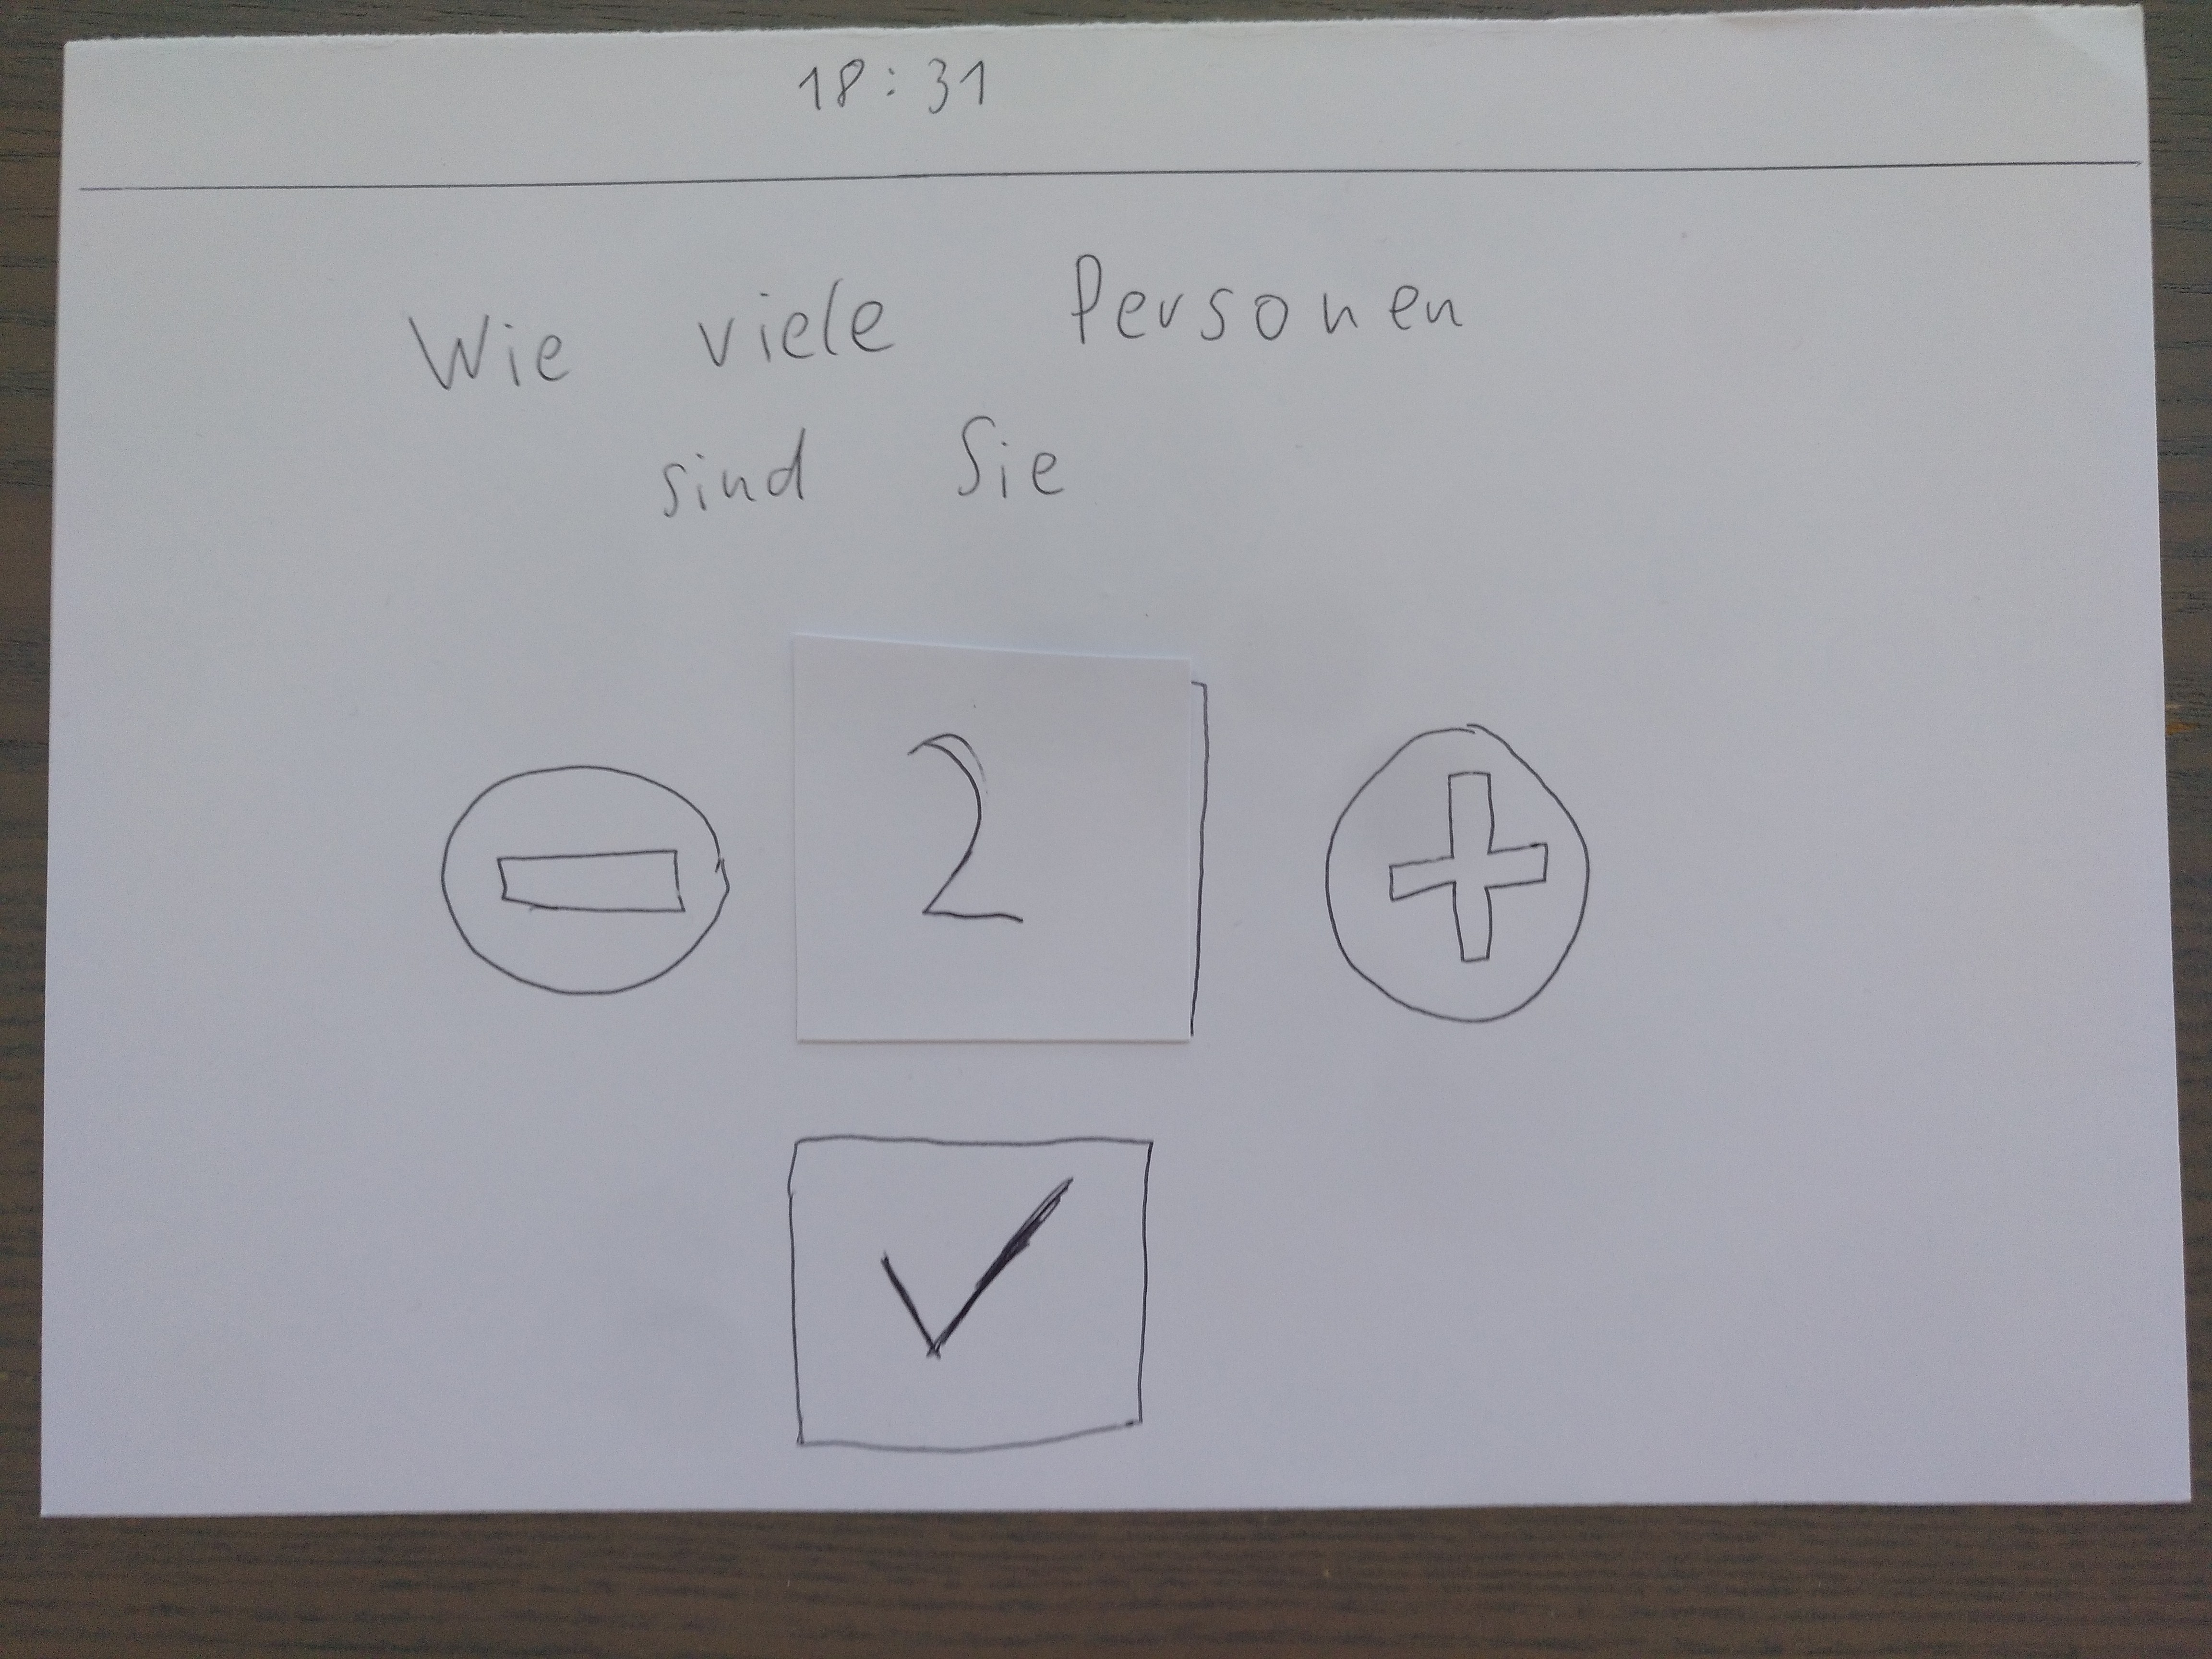 18:31
Wie viele Personen
sind Sie
2